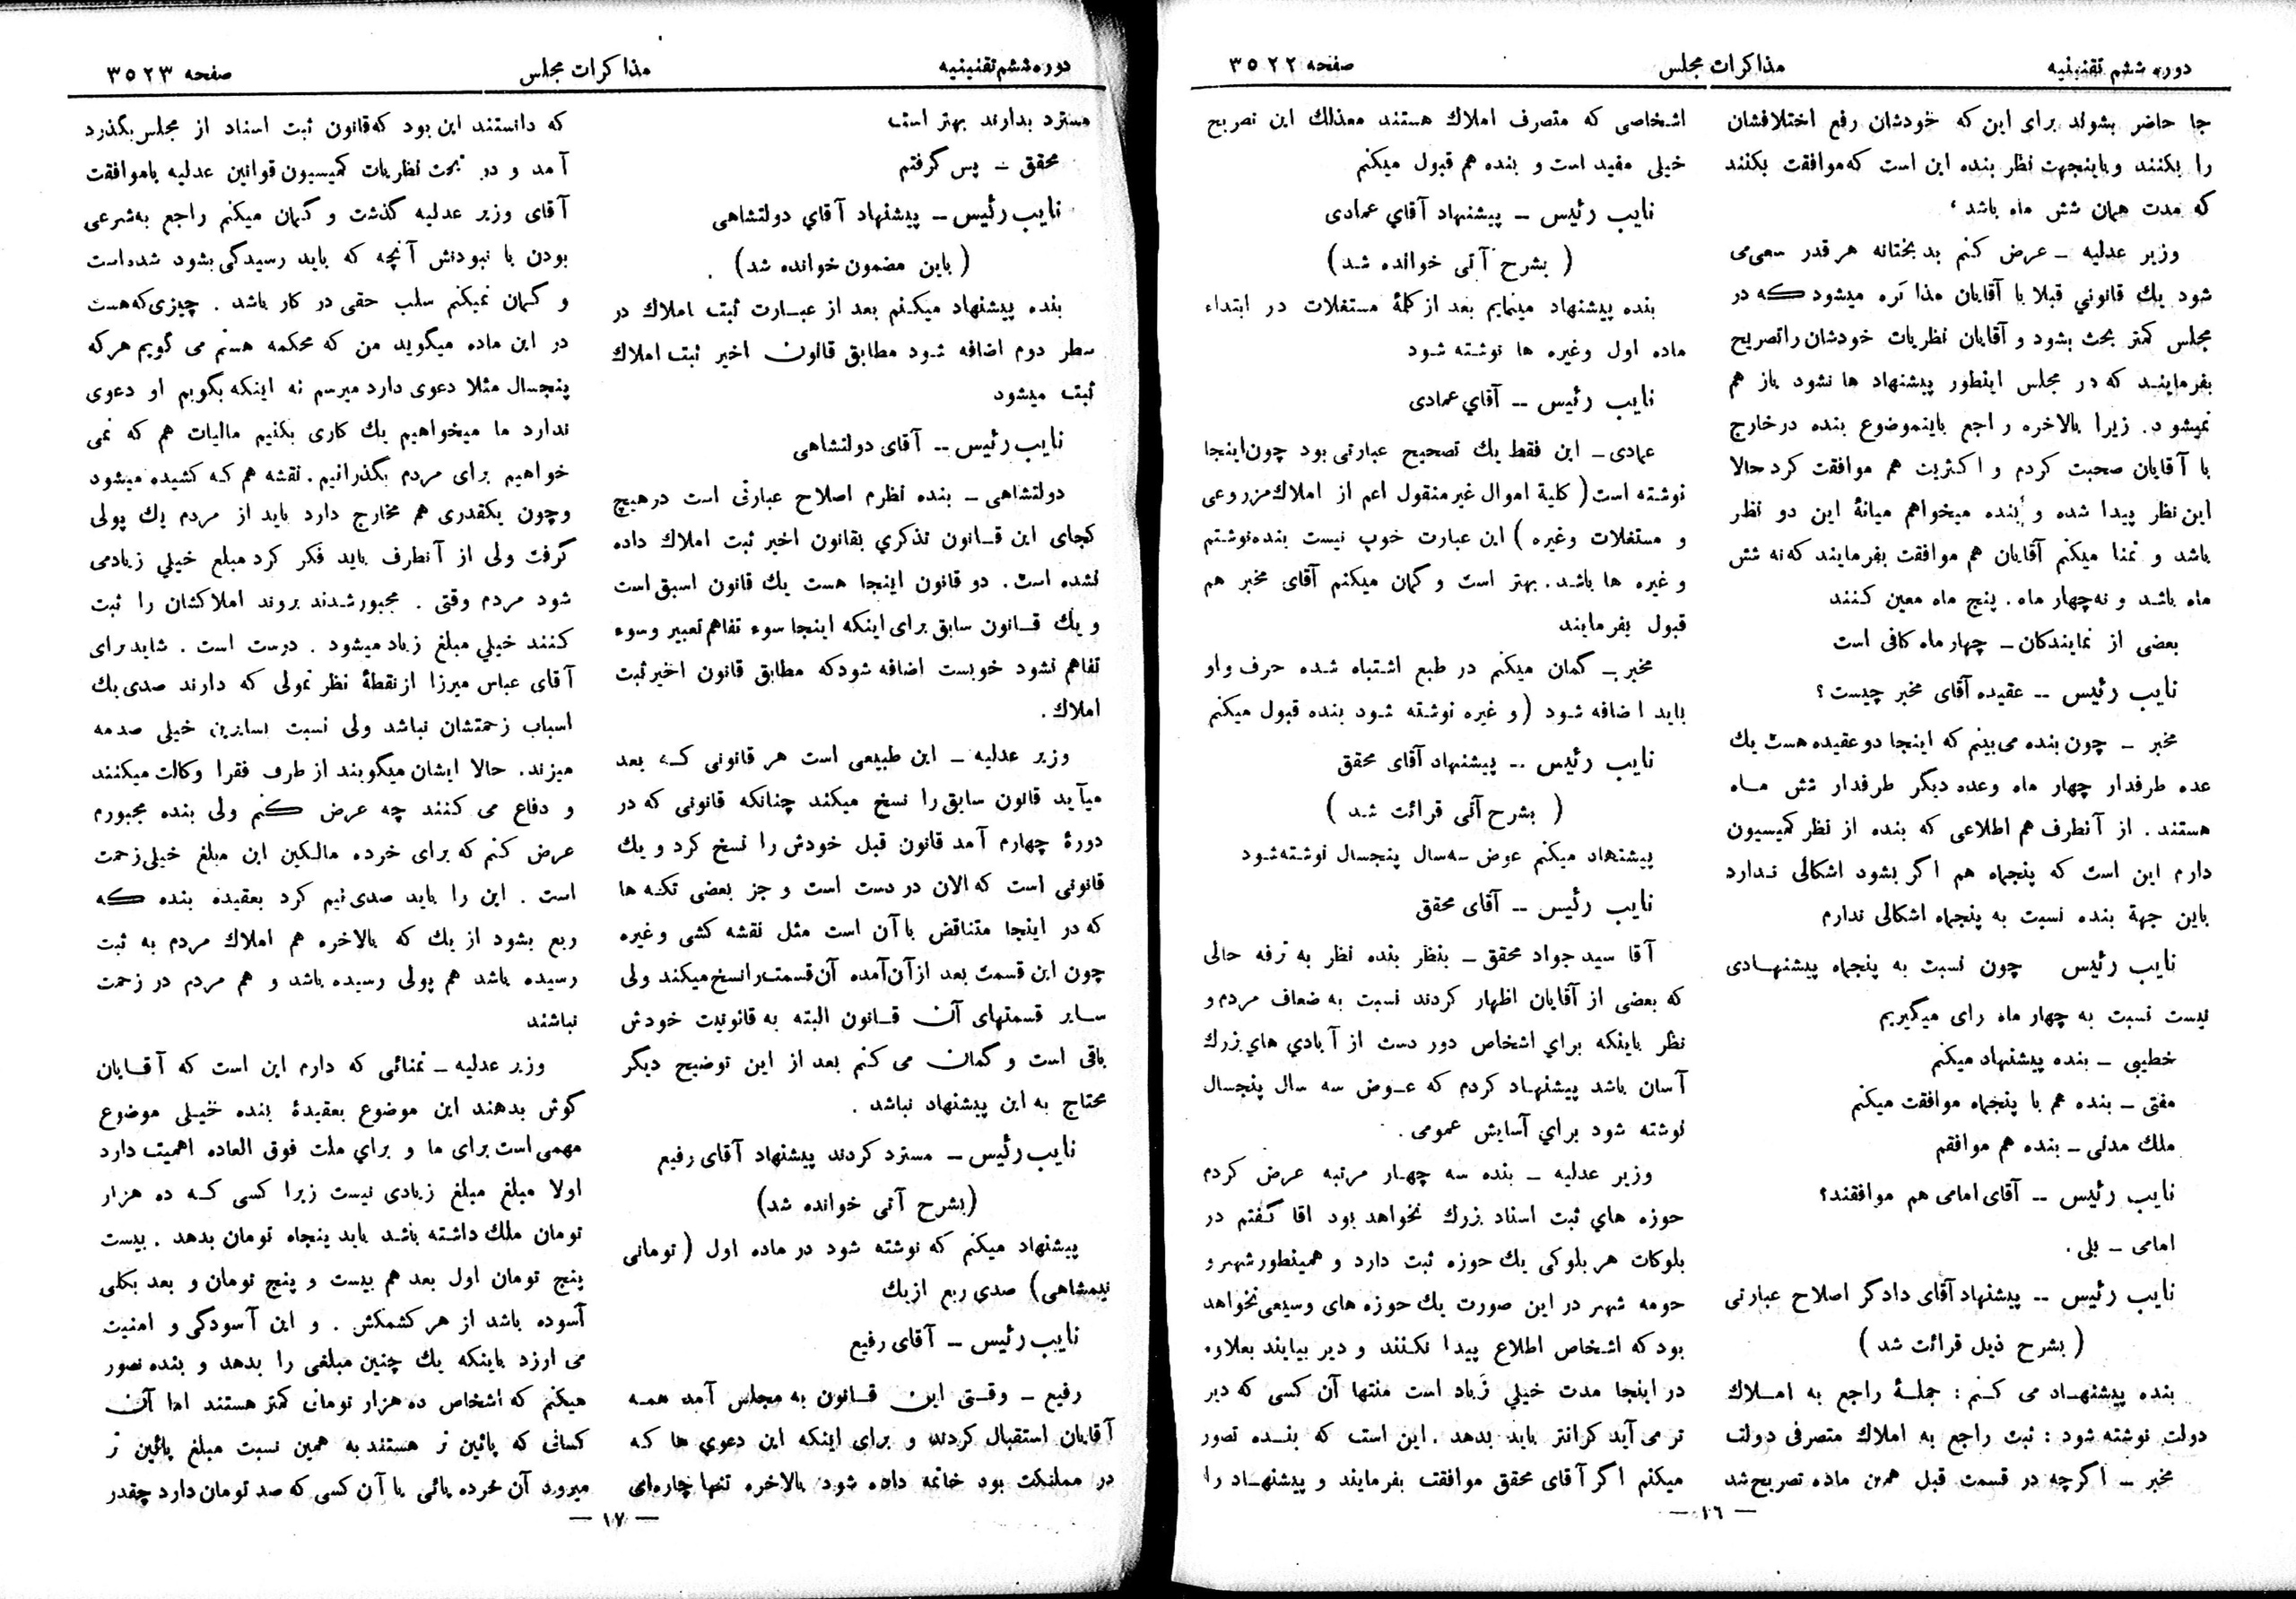 دوره ششم تقنینیه
مذاکرات مجلس
صفحه ۳۵۲۲
جا حاضر بشوند برای این که خودشان رفع اختلافشان
را بکنند و باینجهت نظر بنده این است که موافقت بکنند
که مدت همان شش ماه باشد
وزیر عدلیه ـ عرض کنم بدبختانه هر قدر سعی می
شود یك قانونی قبلا با آقایان مذاکره میشود که در
مجلس کمتر بحث بشود و آقایان نظریات خودشان را تصریح
بفرمایند که در مجلس اینطور پیشنهاد ها نشود باز هم
نمیشود. زیرا بالاخره راجع باینموضوع بنده در خارج
با آقایان صحبت کردم و اکثریت هم موافقت کرد حالا
این نظر پیدا شده و بنده میخواهم میانهٔ این دو نظر
باشد و تمنا میکنم آقایان هم موافقت بفرمایند که نه شش
ماه باشد و نه چهار ماه. پنج ماه معین کنند
بعضی از نمایندگان ـ چهار ماه کافی است
نایب رئیس ـ عقیده آقای مخبر چیست ؟
مخبر ـ چون بنده می بینم که اینجا دو عقیده هست یك
عده طرفدار چهار ماه وعده دیگر طرفدار شش ماه
هستند . از آنطرف هم اطلاعی که بنده از نظر کمیسیون
دارم این است که پنجماه هم اگر بشود اشکالی ندارد
باین جهة بنده نسبت به پنجماه اشکالی ندارم
نایب رئیس چون نسبت به پنجماه پیشنهادی
نیست نسبت به چهار ماه رای میگیریم
خطیبی ـ بنده پیشنهاد میکنم
مفتی ـ بنده هم با پنجماه موافقت میکنم
ملك مدنی ـ بنده هم موافقم
نایب رئیس ـ آقای امامی هم موافقند؟
امامی ـ بلی .
نایب رئیس ـ پیشنهاد آقای دادگر اصلاح عبارتی
( بشرح ذیل قرائت شد )
بنده پیشنهاد می کنم : جملهٔ راجع به املاك
دولت نوشته شود : ثبت راجع به املاك متصرفی دولت
مخبر ـ اگرچه در قسمت قبل همین ماده تصریح شد
اشخاصی که متصرف املاك هستند معذلك این تصریح
خیلی مفید است و بنده هم قبول میکنم
نایب رئیس ـ پیشنهاد آقای عمادی
( بشرح آتی خوانده شد )
بنده پیشنهاد مینمایم بعد از کلمهٔ مستغلات در ابتداء
ماده اول وغیره ها نوشته شود
نایب رئیس ـ آقای عمادی
عمادی ـ این فقط یك تصحیح عبارتی بود چون اینجا
نوشته است ( کلیة اموال غیر منقول اعم از املاك مزروعی
و مستغلات وغیره ) این عبارت خوب نیست بنده نوشتم
و غیره ها باشد. بهتر است و گمان میکنم آقای مخبر هم
قبول بفرمایند
مخبر ـ گمان میکنم در طبع اشتباه شده حرف واو
باید اضافه شود (و غیره نوشته شود بنده قبول میکنم
نایب رئیس ـ پیشنهاد آقای محقق
( بشرح آتی قرائت شد )
پیشنهاد میکنم عوض سه سال پنجسال نوشته شود
نایب رئیس ـ آقای محقق
آقا سید جواد محقق ـ بنظر بنده نظر به ترفه حالی
که بعضی از آقایان اظهار کردند نسبت به ضعاف مردم و
نظر باینکه برای اشخاص دور دست از آبادی های بزرك
آسان باشد پیشنهاد کردم که عوض سه سال پنجسال
نوشته شود برای آسایش عمومی .
وزیر عدلیه ـ بنده سه چهار مرتبه عرض کردم
حوزه های ثبت اسناد بزرك نخواهد بود اقا گفتم در
بلوکات هر بلوکی یك حوزه ثبت دارد و همینطور شهر و
حومه شهر در این صورت یك حوزه های وسیعی نخواهد
بود که اشخاص اطلاع پیدا نکنند و دیر بیایند بعلاوه
در اینجا مدت خیلی زیاد است منتها آن کسی که دیر
تر می آید گرانتر باید بدهد . این است که بنده تصور
میکنم اگر آقای محقق موافقت بفرمایند و پیشنهاد را
— ۱۶ —
دوره ششم تقنینیه
مذاکرات مجلس
صفحه ۳۵۲۳
مسترد بدارند بهتر است
محقق ـ پس گرفتم
نایب رئیس ـ پیشنهاد آقای دولتشاهی
( باین مضمون خوانده شد )
بنده پیشنهاد میکنم بعد از عبارت ثبت املاك در
سطر دوم اضافه شود مطابق قانون اخیر ثبت املاك
ثبت میشود
نایب رئیس ـ آقای دولتشاهی
دولتشاهی ـ بنده نظرم اصلاح عبارتی است در هیچ
کجای این قانون تذکری بقانون اخیر ثبت املاك داده
نشده است . دو قانون اینجا هست یك قانون اسبق است
و یك قانون سابق برای اینکه اینجا سوء تفاهم تعبیر وسوء
تفاهم نشود خوبست اضافه شود که مطابق قانون اخیر ثبت
املاك .
وزیر عدلیه ـ این طبیعی است هر قانونی که بعد
میآید قانون سابق را نسخ میکند چنانکه قانونی که در
دورهٔ چهارم آمد قانون قبل خودش را نسخ کرد و یك
قانونی است که الان در دست است و جز بعضی تکه ها
که در اینجا متناقض با آن است مثل نقشه کشی وغیره
چون این قسمت بعد از آن آمده آن قسمت را نسخ میکند ولی
سایر قسمتهای آن قانون البته به قانونیت خودش
باقی است و گمان می کنم بعد از این توضیح دیگر
محتاج به این پیشنهاد نباشد .
نایب رئیس ـ مسترد کردند پیشنهاد آقای رفیع
(بشرح آتی خوانده شد)
پیشنهاد میکنم که نوشته شود در ماده اول ( تومانی
نیمشاهی) صدی ربع از یك
نایب رئیس ـ آقای رفیع
رفیع ـ وقتی این قانون به مجلس آمد همه
آقایان استقبال کردند و برای اینکه این دعوی ها که
در مملکت بود خاتمه داده شود بالاخره تنها چاره‌ای
که دانستند این بود که قانون ثبت اسناد از مجلس بگذرد
آمد و در تحت نظریات کمیسیون قوانین عدلیه با موافقت
آقای وزیر عدلیه گذشت و گمان میکنم راجع به شرعی
بودن یا نبودنش آنچه که باید رسیدگی بشود شده است
و گمان نمیکنم سلب حقی در کار باشد . چیزی که هست
در این ماده میگوید من که محکمه هستم می گویم هر که
پنجسال مثلا دعوی دارد میرسم نه اینکه بگویم او دعوی
ندارد ما میخواهیم یك کاری بکنیم مالیات هم که نمی
خواهیم برای مردم بگذرانیم . نقشه هم که کشیده میشود
وچون یکقدری هم مخارج دارد باید از مردم یك پولی
گرفت ولی از آنطرف باید فکر کرد مبلغ خیلی زیادمی
شود مردم وقتی . مجبور شدند بروند املاکشان را ثبت
کنند خیلی مبلغ زیاد میشود . درست است . شاید برای
آقای عباس میرزا از نقطهٔ نظر تمولی که دارند صدی یك
اسباب زحمتشان نباشد ولی نسبت بسایرین خیلی صدمه
میزند. حالا ایشان میگویند از طرف فقرا وکالت میکنند
و دفاع می کنند چه عرض کنم ولی بنده مجبورم
عرض کنم که برای خرده مالکین این مبلغ خیلی زحمت
است . این را باید صدی نیم کرد بعقیده بنده که
ربع بشود از یك که بالاخره هم املاك مردم به ثبت
رسیده باشد هم پولی رسیده باشد و هم مردم در زحمت
نباشند
وزیر عدلیه ـ تمنائی که دارم این است که آقایان
گوش بدهند این موضوع بعقیدهٔ بنده خیلی موضوع
مهمی است برای ما و برای ملت فوق العاده اهمیت دارد
اولا مبلغ مبلغ زیادی نیست زیرا کسی که ده هزار
تومان ملك داشته باشد باید پنجاه تومان بدهد . بیست
پنج تومان اول بعد هم بیست و پنج تومان و بعد بکلی
آسوده باشد از هر کشمکش . و این آسودگی و امنیت
می ارزد باینکه یك چنین مبلغی را بدهد و بنده تصور
میکنم که اشخاص ده هزار تومانی کمتر هستند اما آن
کسانی که پائین تر هستند به همین نسبت مبلغ پائین تر
میرود آن خرده پائی یا آن کسی که صد تومان دارد چقدر
— ۱۷ —